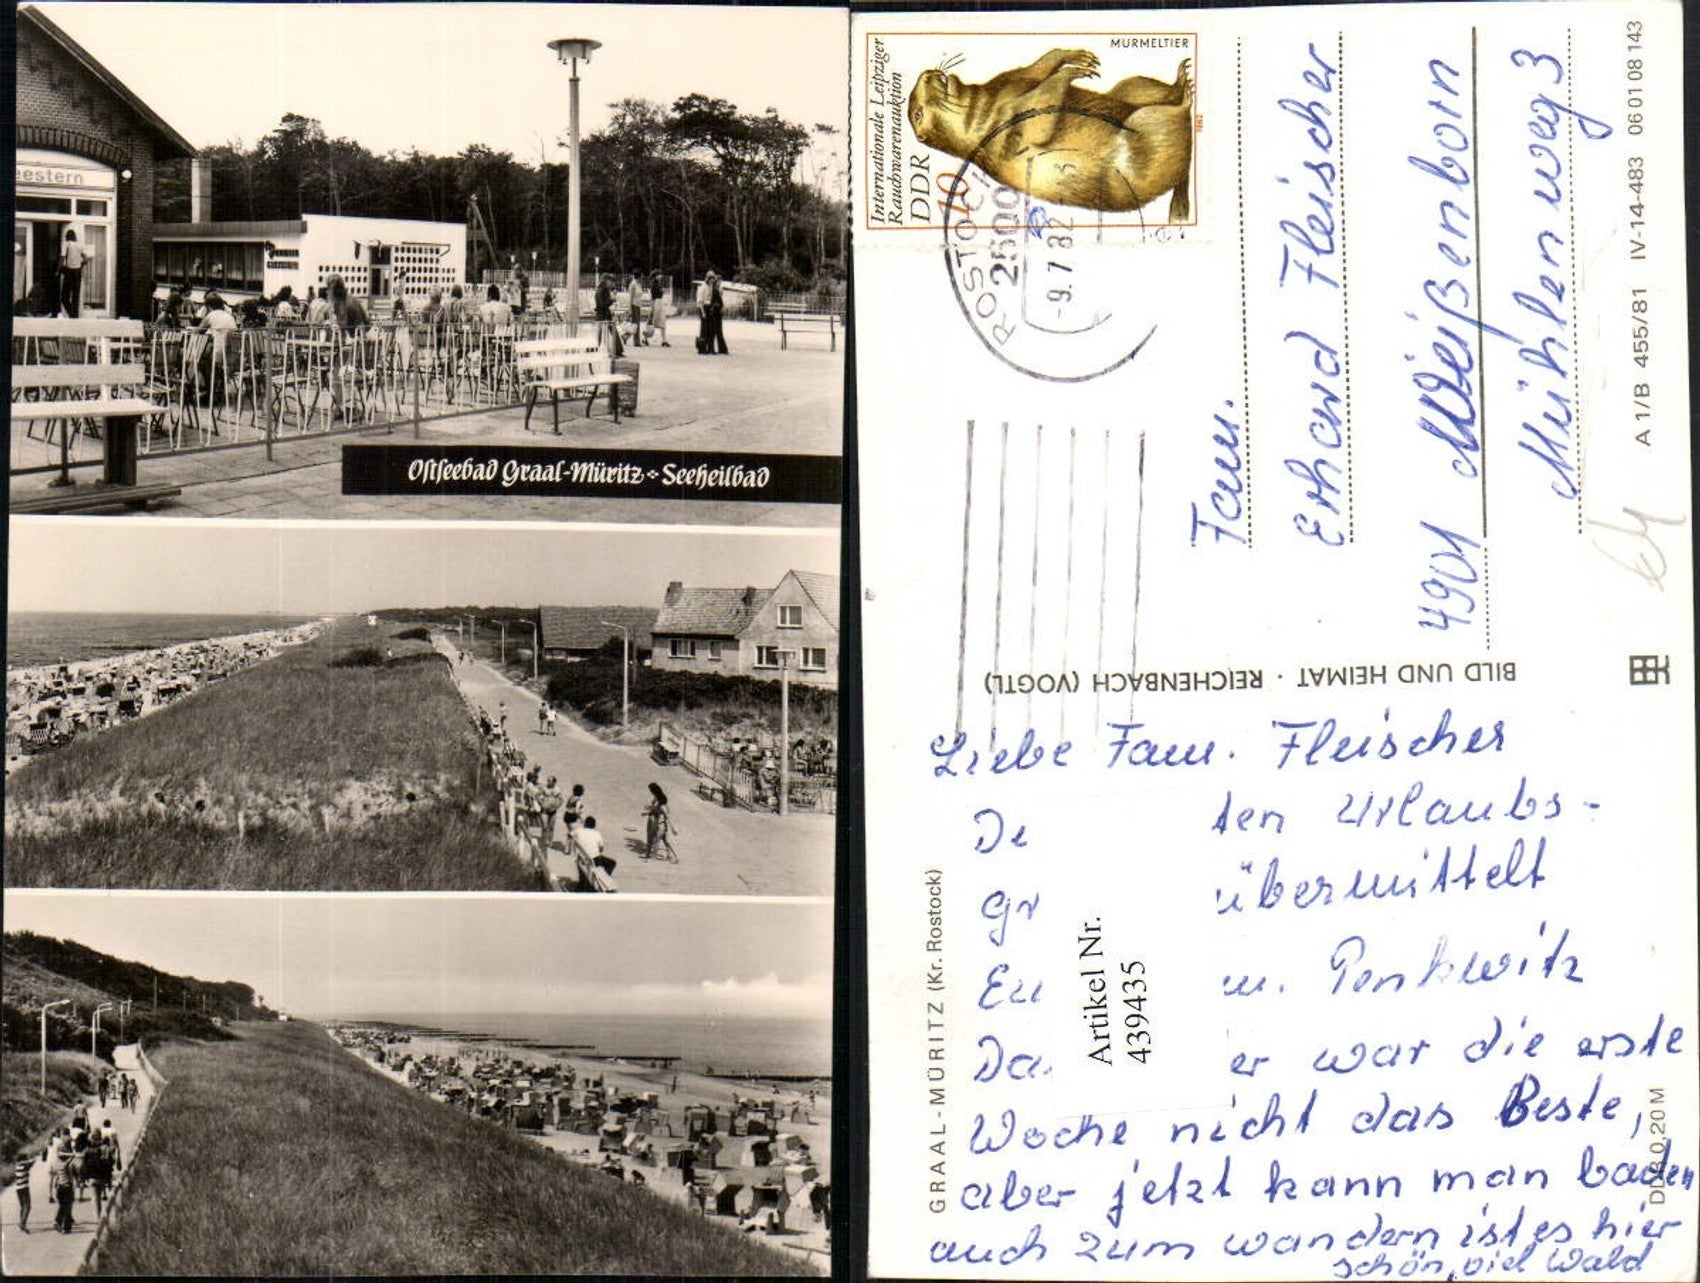 eestern
Ostseebad Graal-Müritz Seeheilbad
MURMELTIER
Internationale Leipziger
Rauchwarenauktion
DDR
10
1982
ROSTOCK
2500
-9.7.82
Fam.
Erhard Fleischer
4901 Weißenborn
Mühlenweg 3
A 1/B 455/81 IV-14-483 06 01 08 143
BILD UND HEIMAT · REICHENBACH (VOGTL)
GRAAL-MÜRITZ (Kr. Rostock)
DDR 0,20 M
Artikel Nr.
439435
Liebe Fam. Fleischer
De ten Urlaubs-
Gr übermittelt
Eu m. Penkwitz
Da. er war die erste
Woche nicht das Beste,
aber jetzt kann man baden
auch zum wandern ist es hier
schön, viel Wald